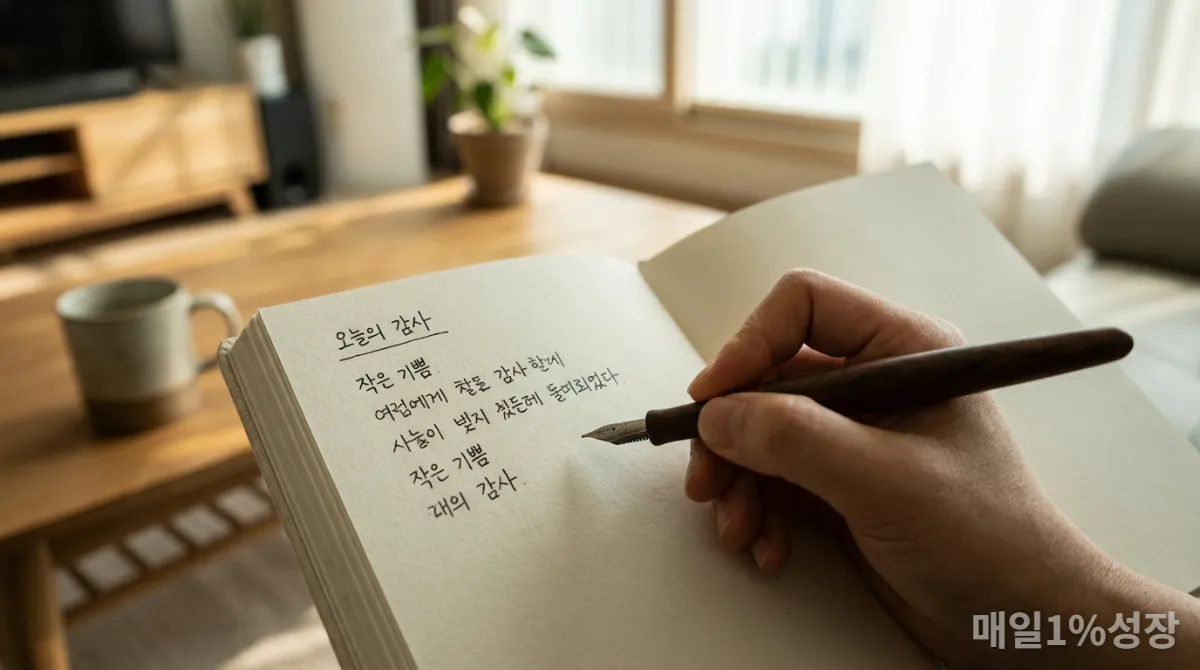 오늘의 감사
작은 기쁨.
여럼에게 찰몰 감사할데
사눌이 벚지 췄든데 돌며뢰었다.
작은 기쁨
대의 감사.
매일1%성장